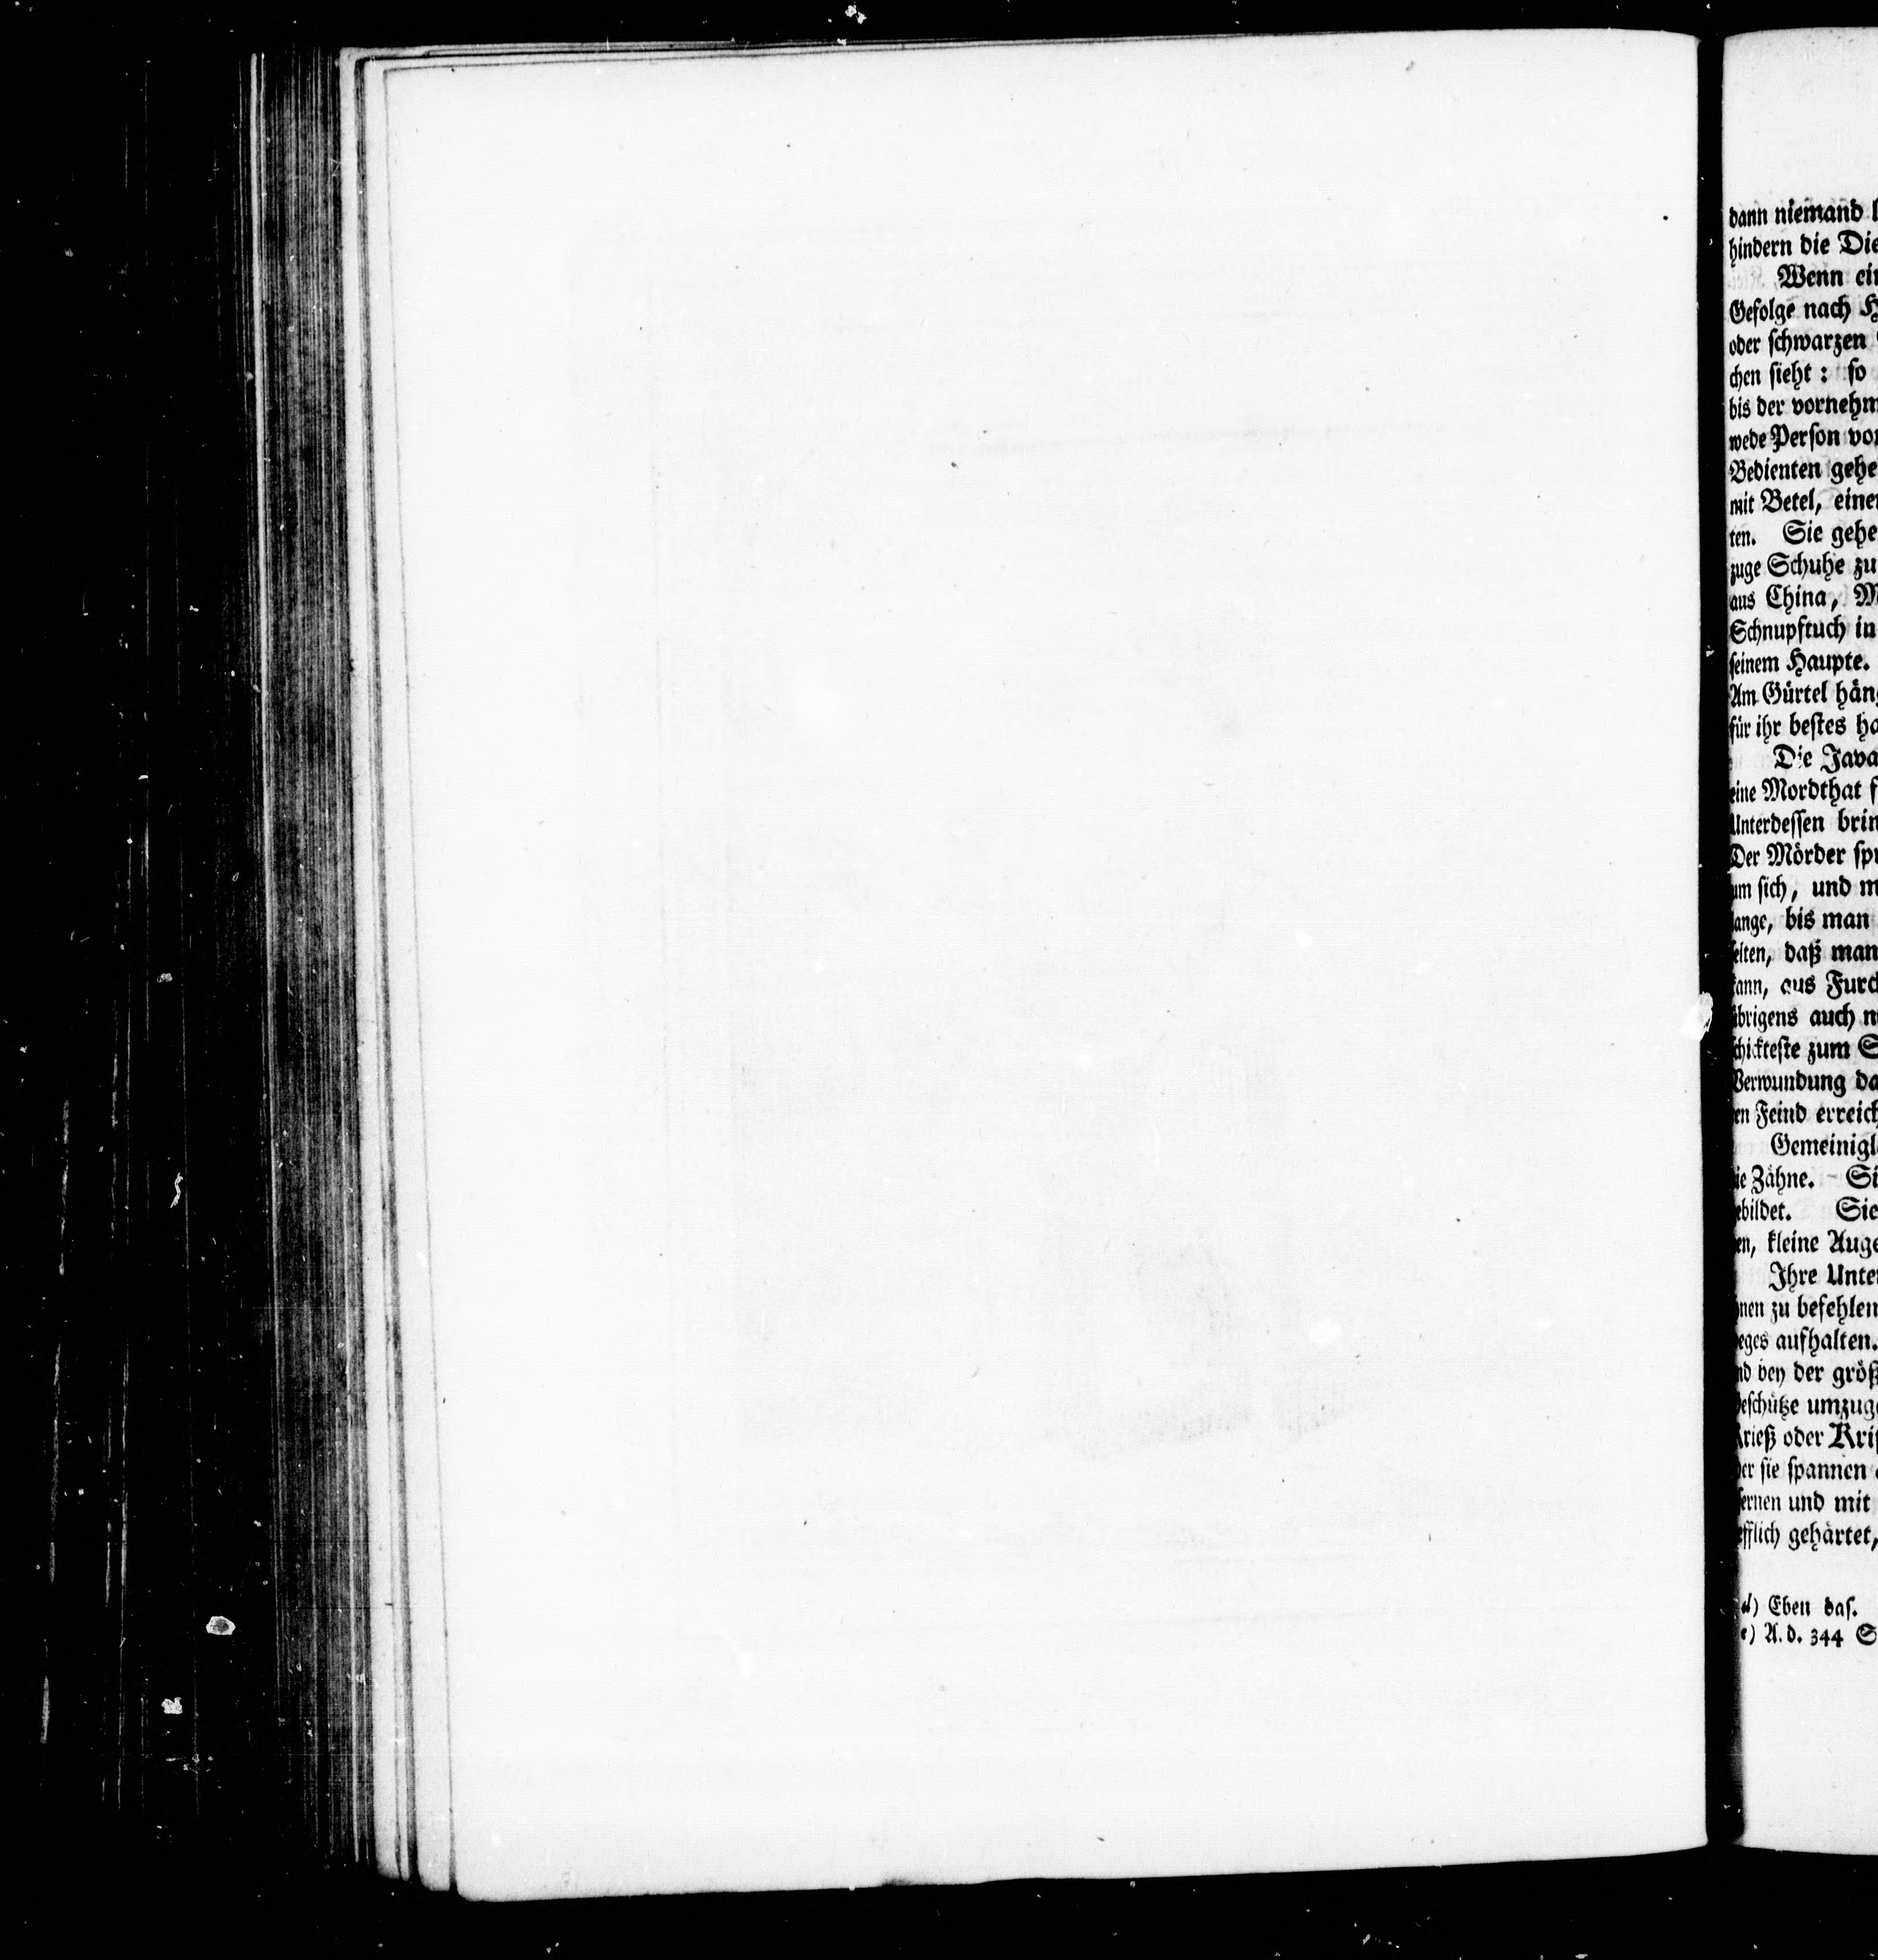 dann niemand
hindern die Die
Wenn ein
Gefolge nach H
oder schwarzen
chen sieht: so
bis der vornehm
wede Person vor
Bedienten gehe
mit Betel, einer
ten. Sie gehe
zuge Schuhe zu
aus China, M
Schnupftuch in
seinem Haupte.
Am Gürtel häng
für ihr bestes ha
Die Java
eine Mordthat f
Unterdessen brin
Der Mörder spr
um sich, und m
lange, bis man
selten, daß man
kann, aus Furch
übrigens auch n
schickteste zum S
Verwundung da
en Feind erreich
Gemeinigl
ie Zähne. Si
ebildet. Sie
en, kleine Auge
Ihre Unter
nen zu befehlen
eges aufhalten.
nd bey der größ
eschütze umzug
Krieß oder Kris
der sie spannen
fernen und mit
efflich gehärtet,
d) Eben das.
e) A. d. 344 S